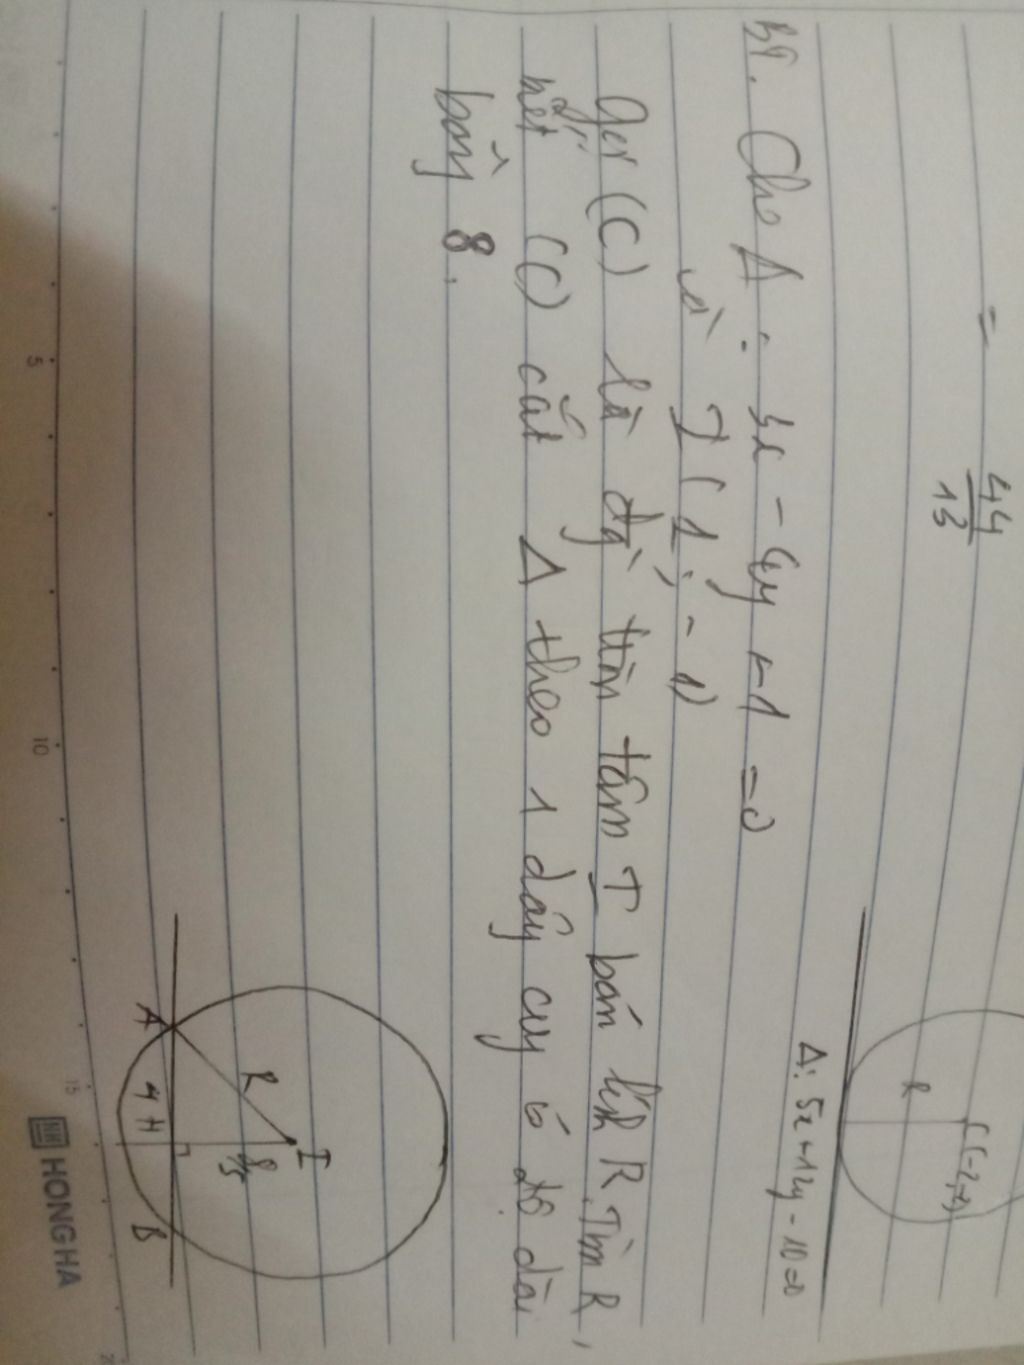 = 44/13
C(-2;-2)
R
Δ: 5x+12y-10=0
BT. Cho Δ: 3x - 4y + 1 = 0
và I(1; -1)
Gọi (C) là đg tròn tâm I bán kính R. Tìm R,
biết (C) cắt Δ theo 1 dây cung có độ dài
bằng 8.
I
R
8/5
A 4 H B
5 10 15
HONG HA